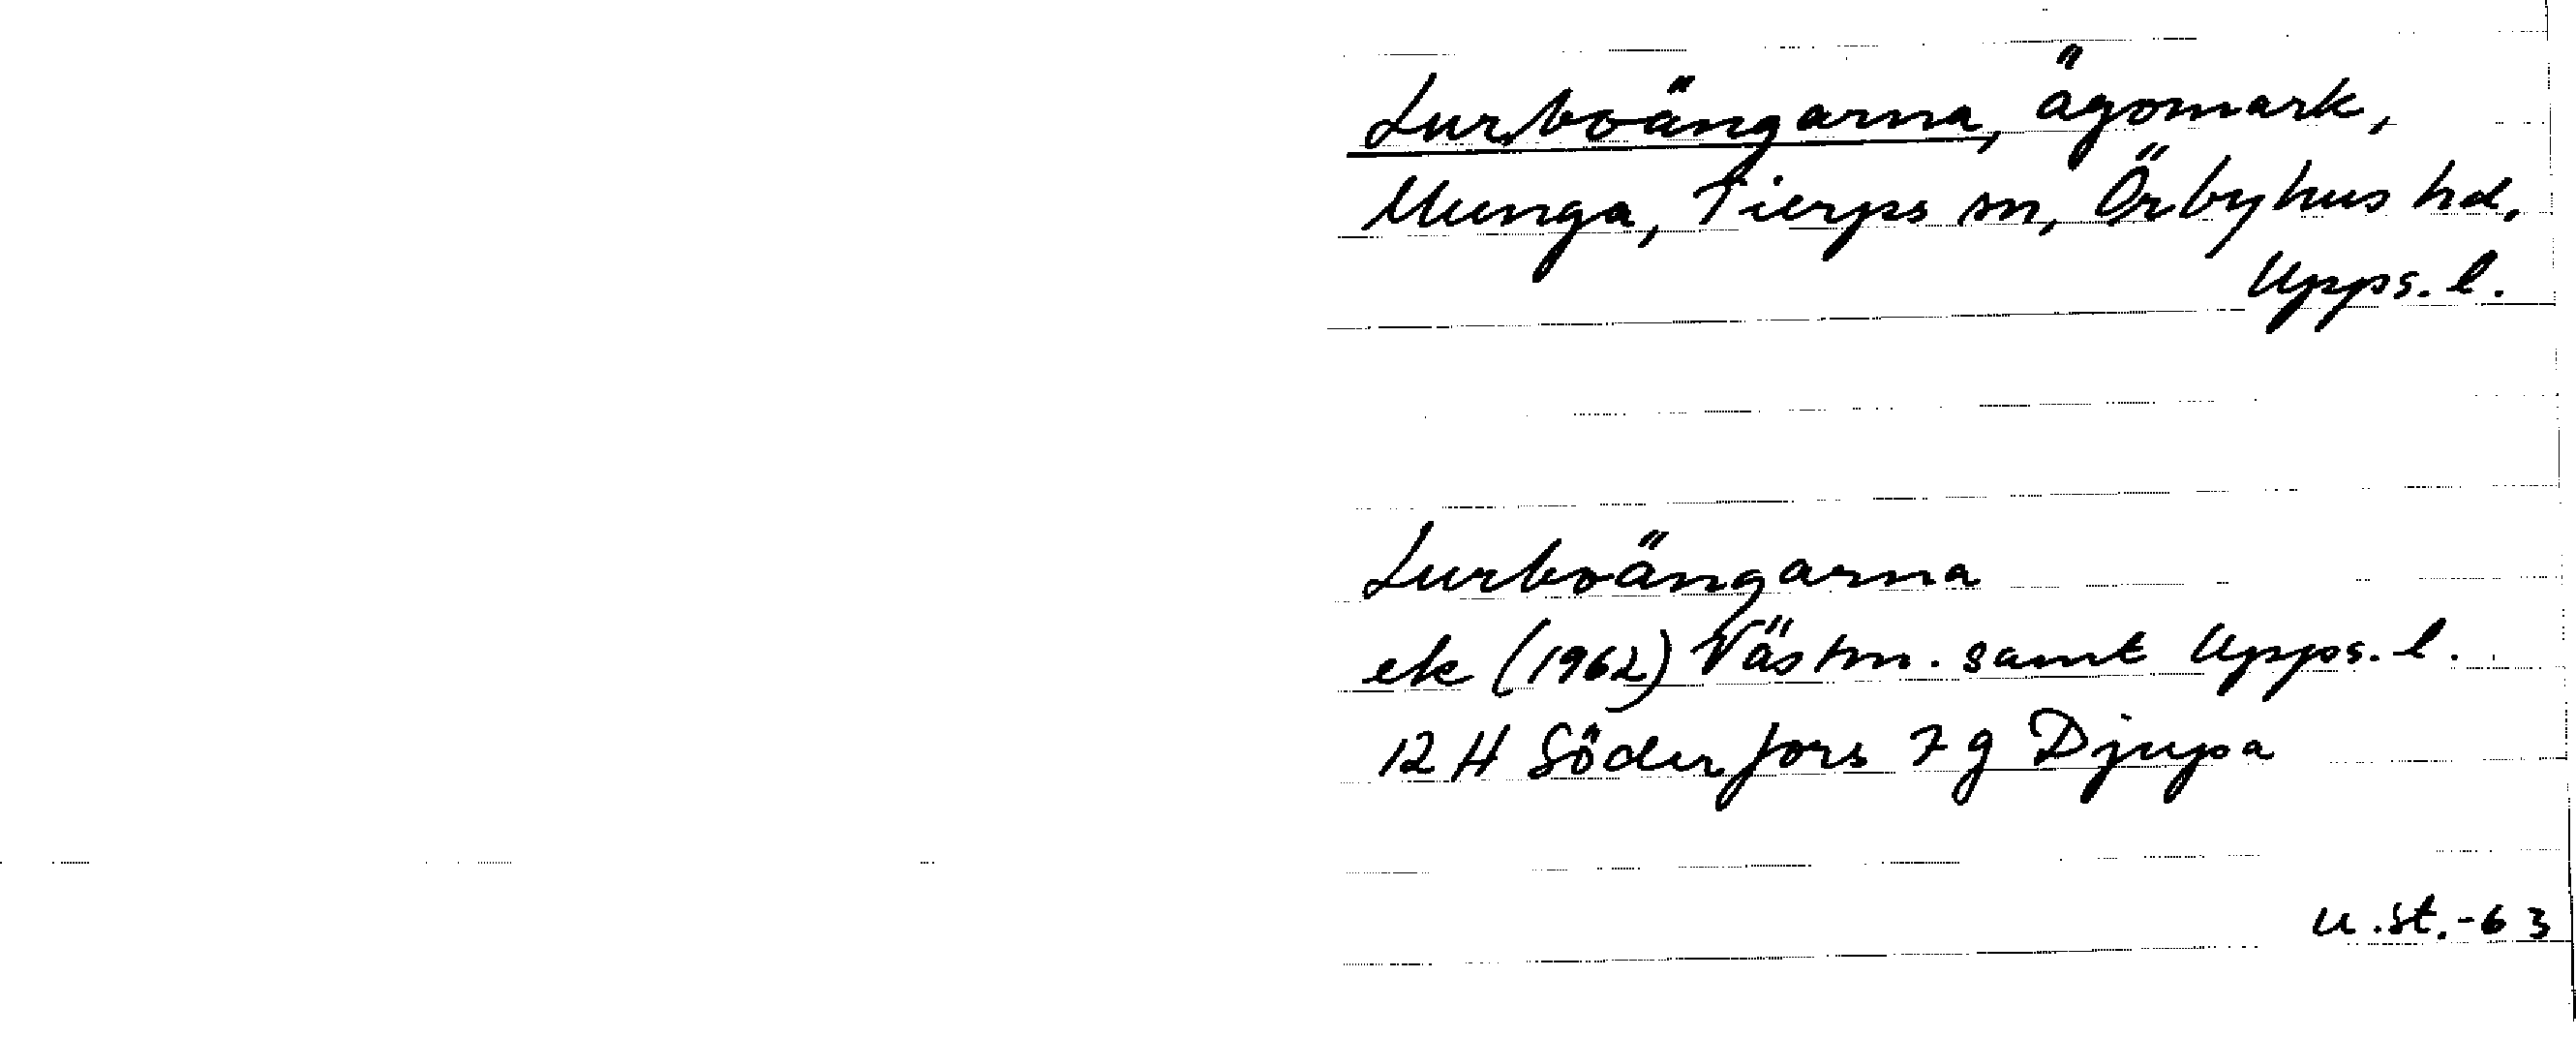 Lurboängarna, ägomark,
Munga, Tierps sn, Örbyhus hd,
Upps. l.
Lurboängarna
ek (1962) Västm. samt Upps. l.
12 H Söderfors 7 g Djupa
u.st.-63